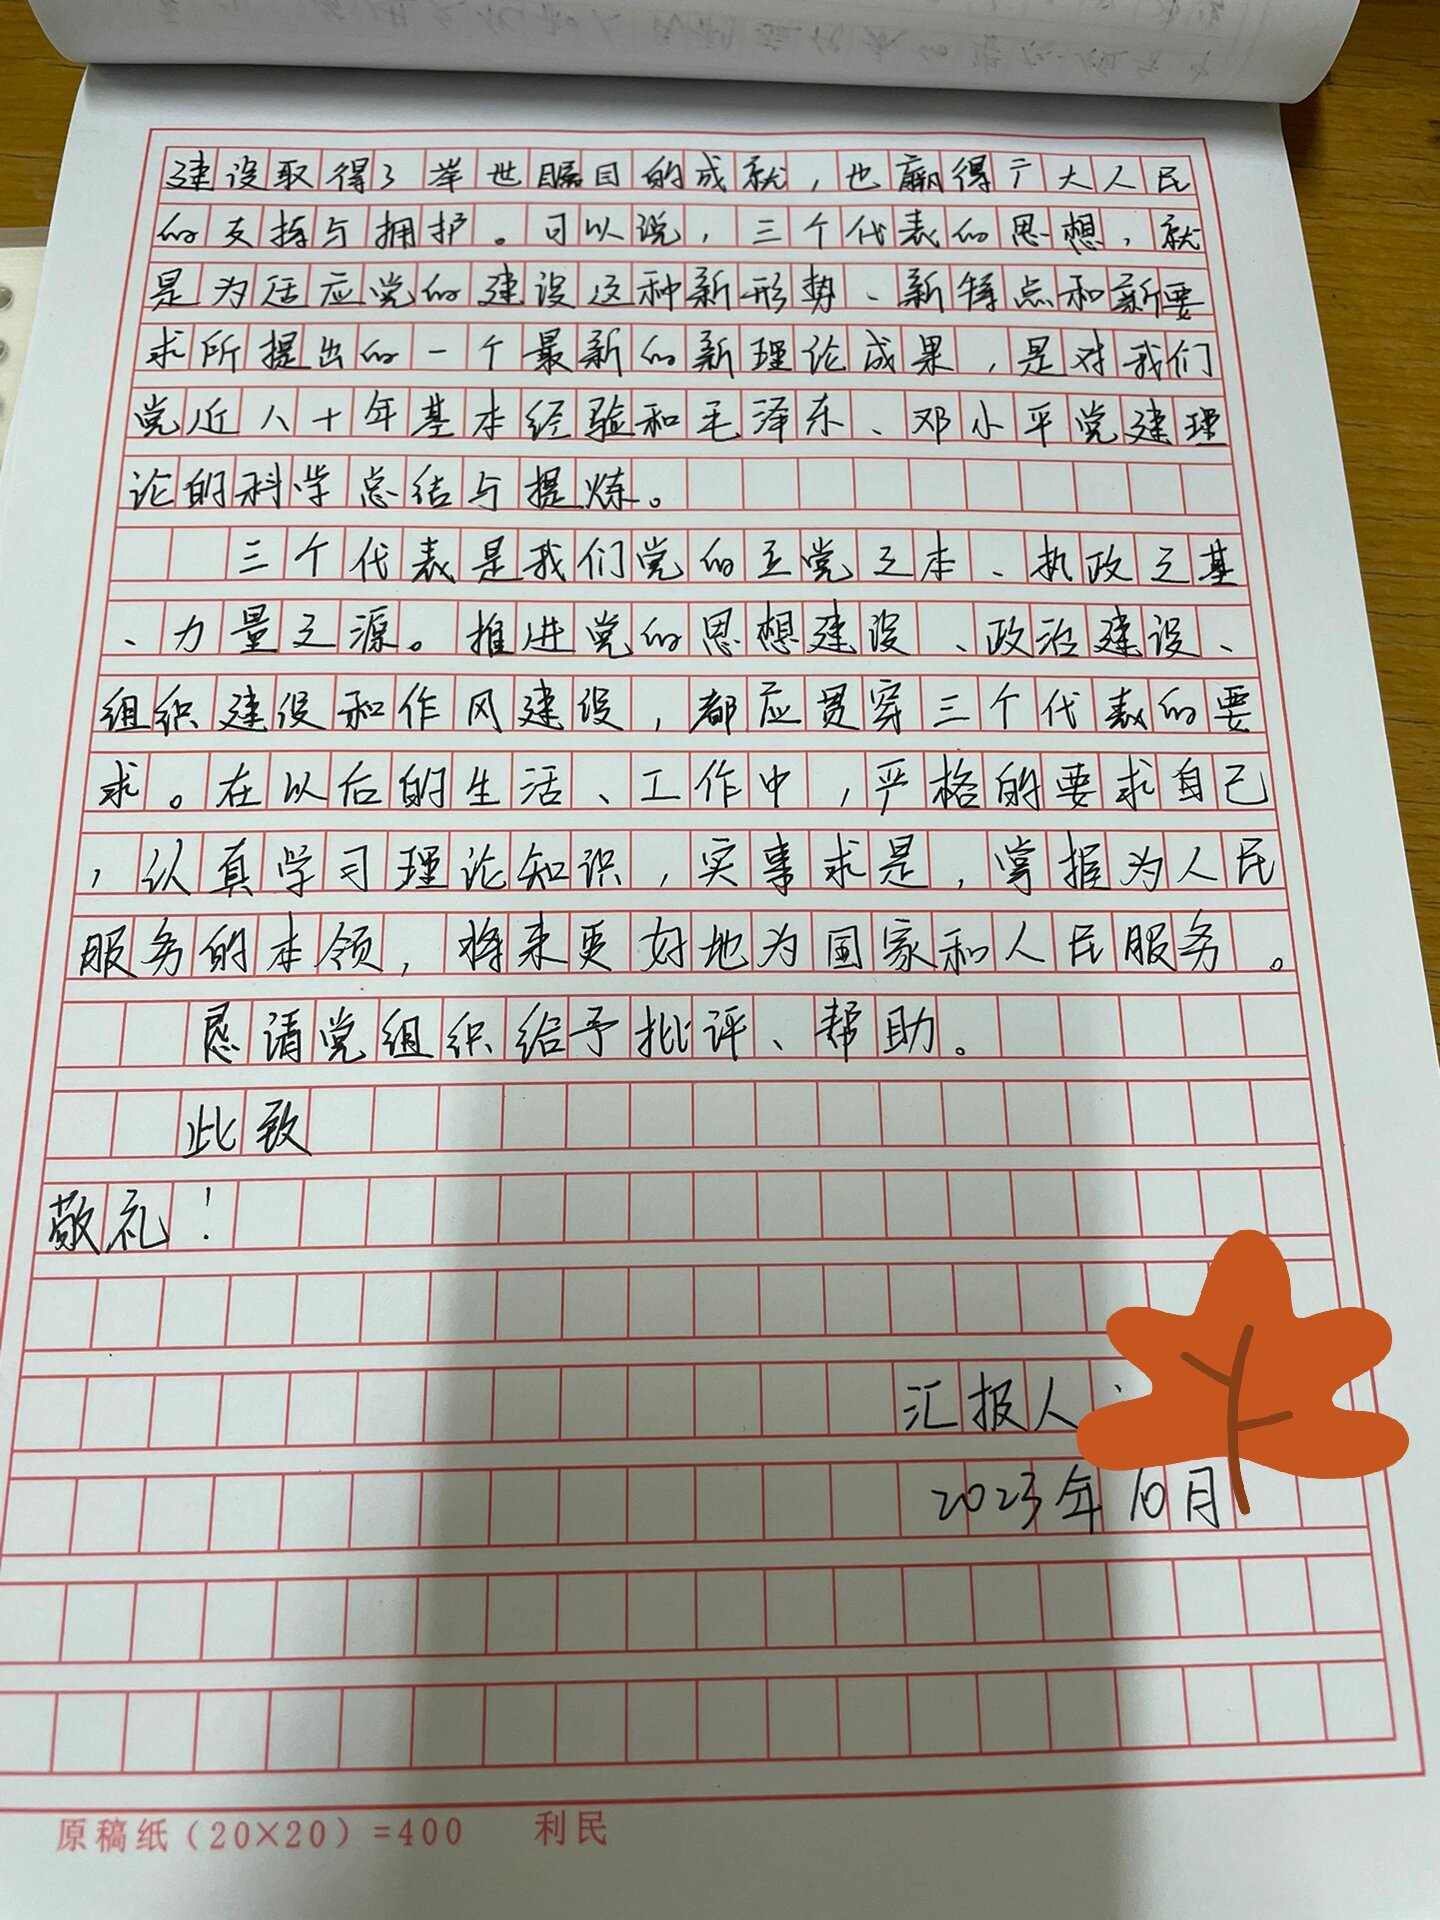 建设取得了举世瞩目的成就，也赢得广大人民
的支持与拥护。可以说，三个代表的思想，就
是为适应党的建设这种新形势、新特点和新要
求所提出的一个最新的新理论成果，是对我们
党近八十年基本经验和毛泽东、邓小平党建理
论的科学总结与提炼。
三个代表是我们党的立党之本、执政之基
、力量之源。推进党的思想建设、政治建设、
组织建设和作风建设，都应贯穿三个代表的要
求。在以后的生活、工作中，严格的要求自己
，认真学习理论知识，实事求是，掌握为人民
服务的本领，将来更好地为国家和人民服务。
恳请党组织给予批评、帮助。
此致
敬礼！
汇报人：
2023年10月
原稿纸（20×20）=400 利民